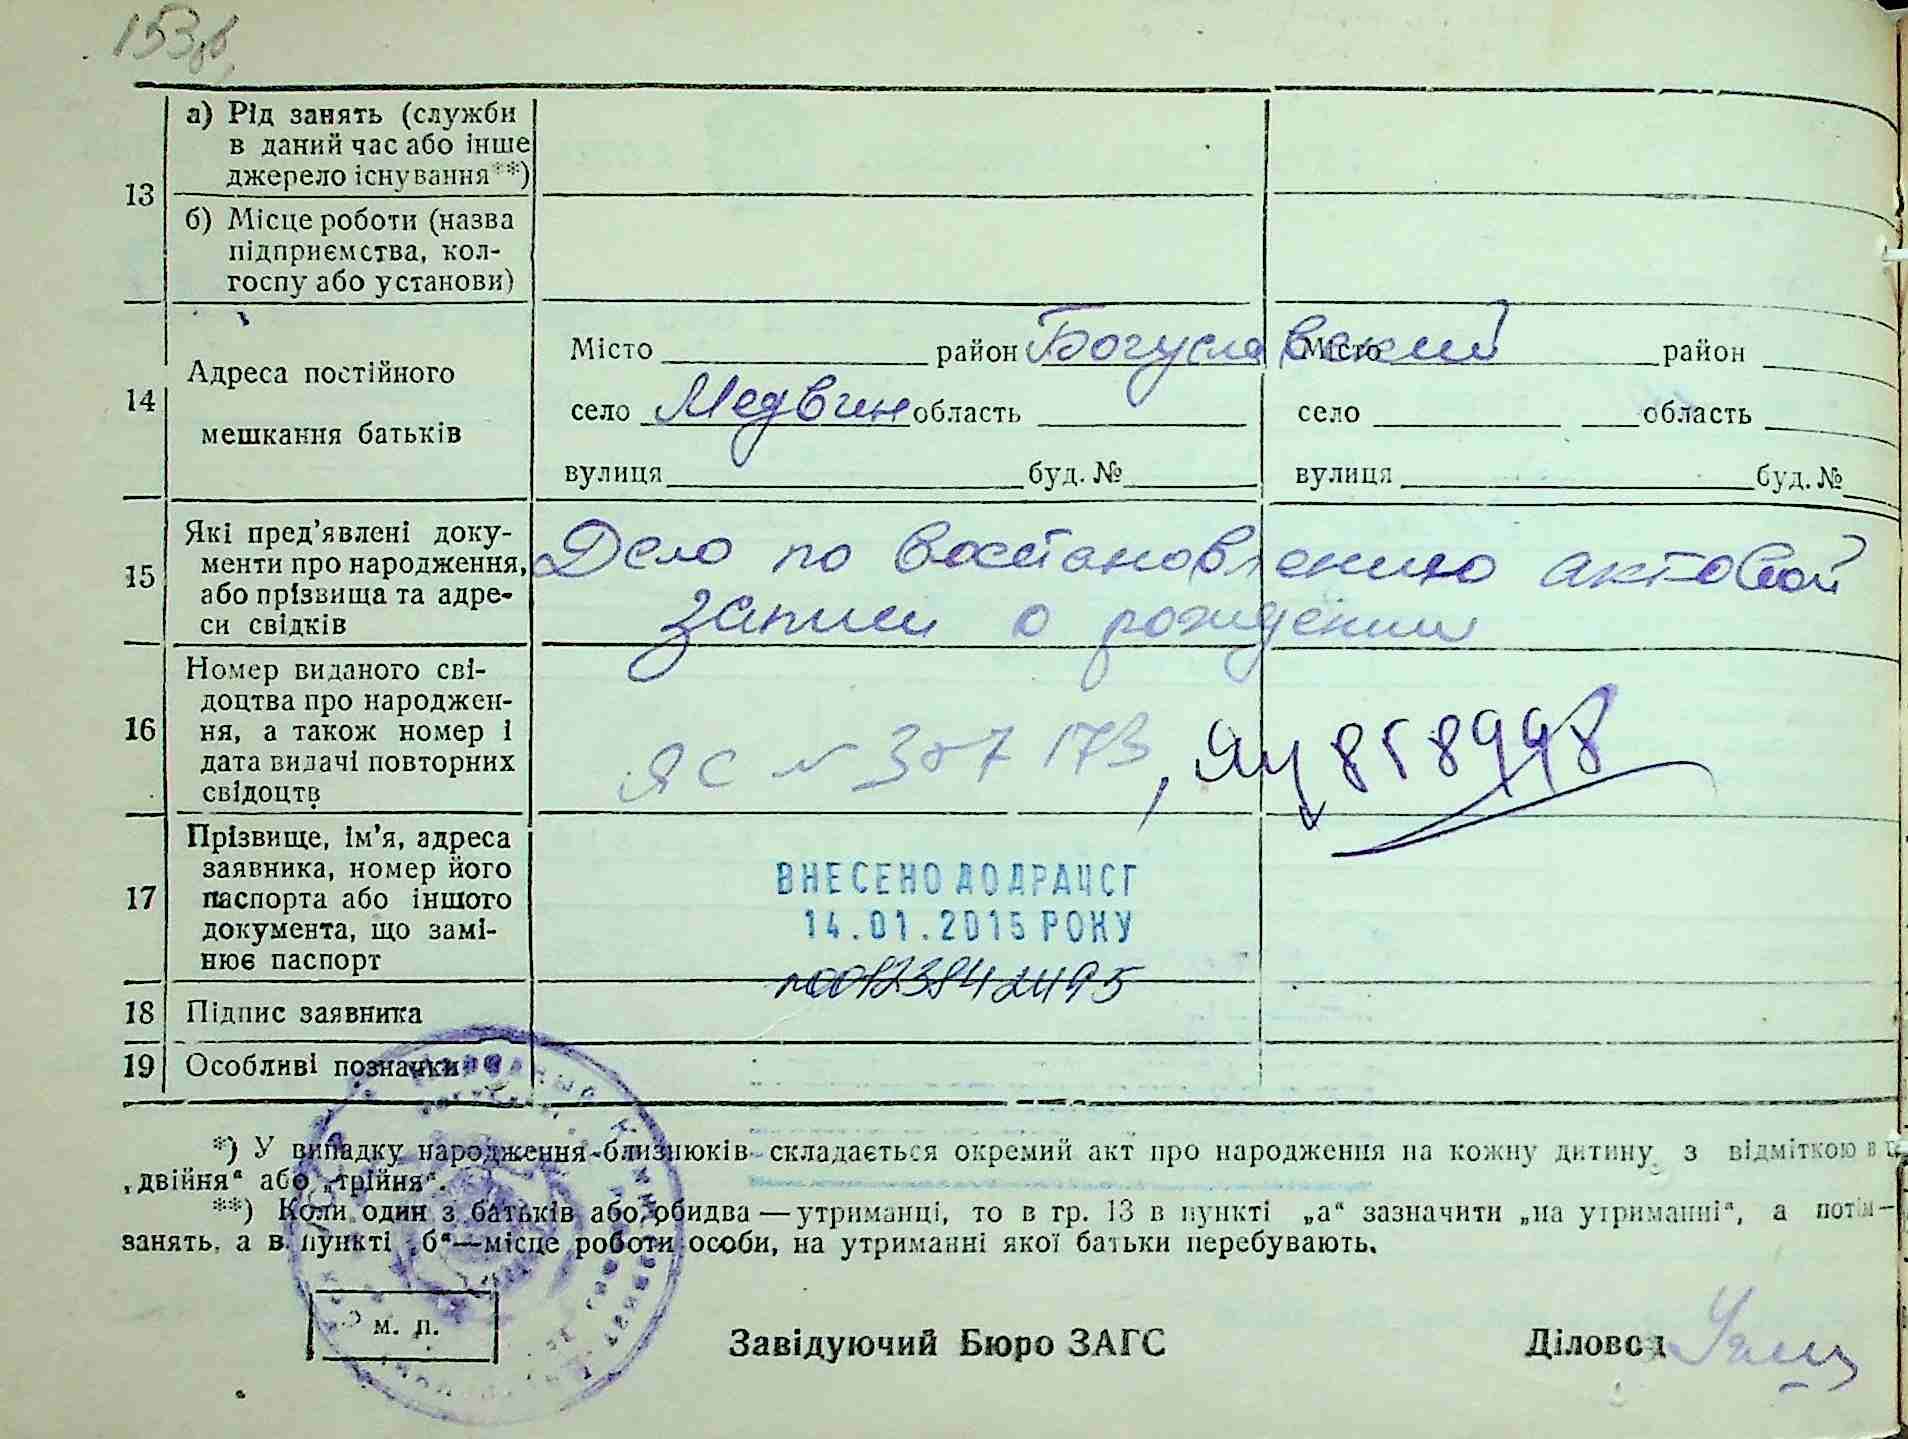 153
а) Рід занять (служби
в даний час або інше
джерело існування**)
13
б) Місце роботи (назва
підприємства, кол-
госпу або установи)
14
Адреса постійного
мешкання батьків
Місто район Богуславский
село Медвин область
вулиця буд. №
Місто район
село область
вулиця буд. №
15
Які пред'явлені доку-
менти про народження,
або прізвища та адре-
си свідків
Дело по восстановлению актовой
записи о рождении
16
Номер виданого сві-
доцтва про народжен-
ня, а також номер і
дата видачі повторних
свідоцтв
ЯС № 387 173, 858998
17
Прізвище, ім'я, адреса
заявника, номер його
паспорта або іншого
документа, що замі-
нює паспорт
ВНЕСЕНО ДО ДРАЦСГ
14.01.2015 РОКУ
18 Підпис заявника
19 Особливі позначки
*) У випадку народження близнюків складається окремий акт про народження на кожну дитину з відміткою в
„двійня“ або „трійня“.
**) Коли один з батьків або обидва — утриманці, то в гр. 13 в пункті „а“ зазначити „на утриманні“, а потім —
занять, а в пункті „б“—місце роботи особи, на утриманні якої батьки перебувають.
м. п.
Завідуючий Бюро ЗАГС
Діловод